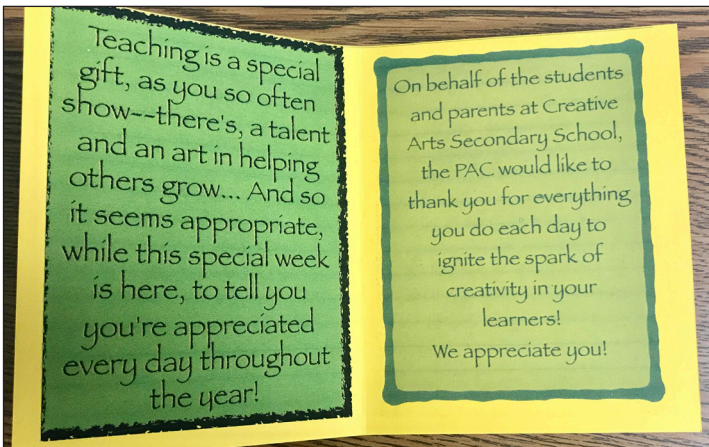 Teaching is a special
gift, as you so often
show--there's, a talent
and an art in helping
others grow... And so
it seems appropriate,
while this special week
is here, to tell you
you're appreciated
every day throughout
the year!
On behalf of the students
and parents at Creative
Arts Secondary School,
the PAC would like to
thank you for everything
you do each day to
ignite the spark of
creativity in your
learners!
We appreciate you!